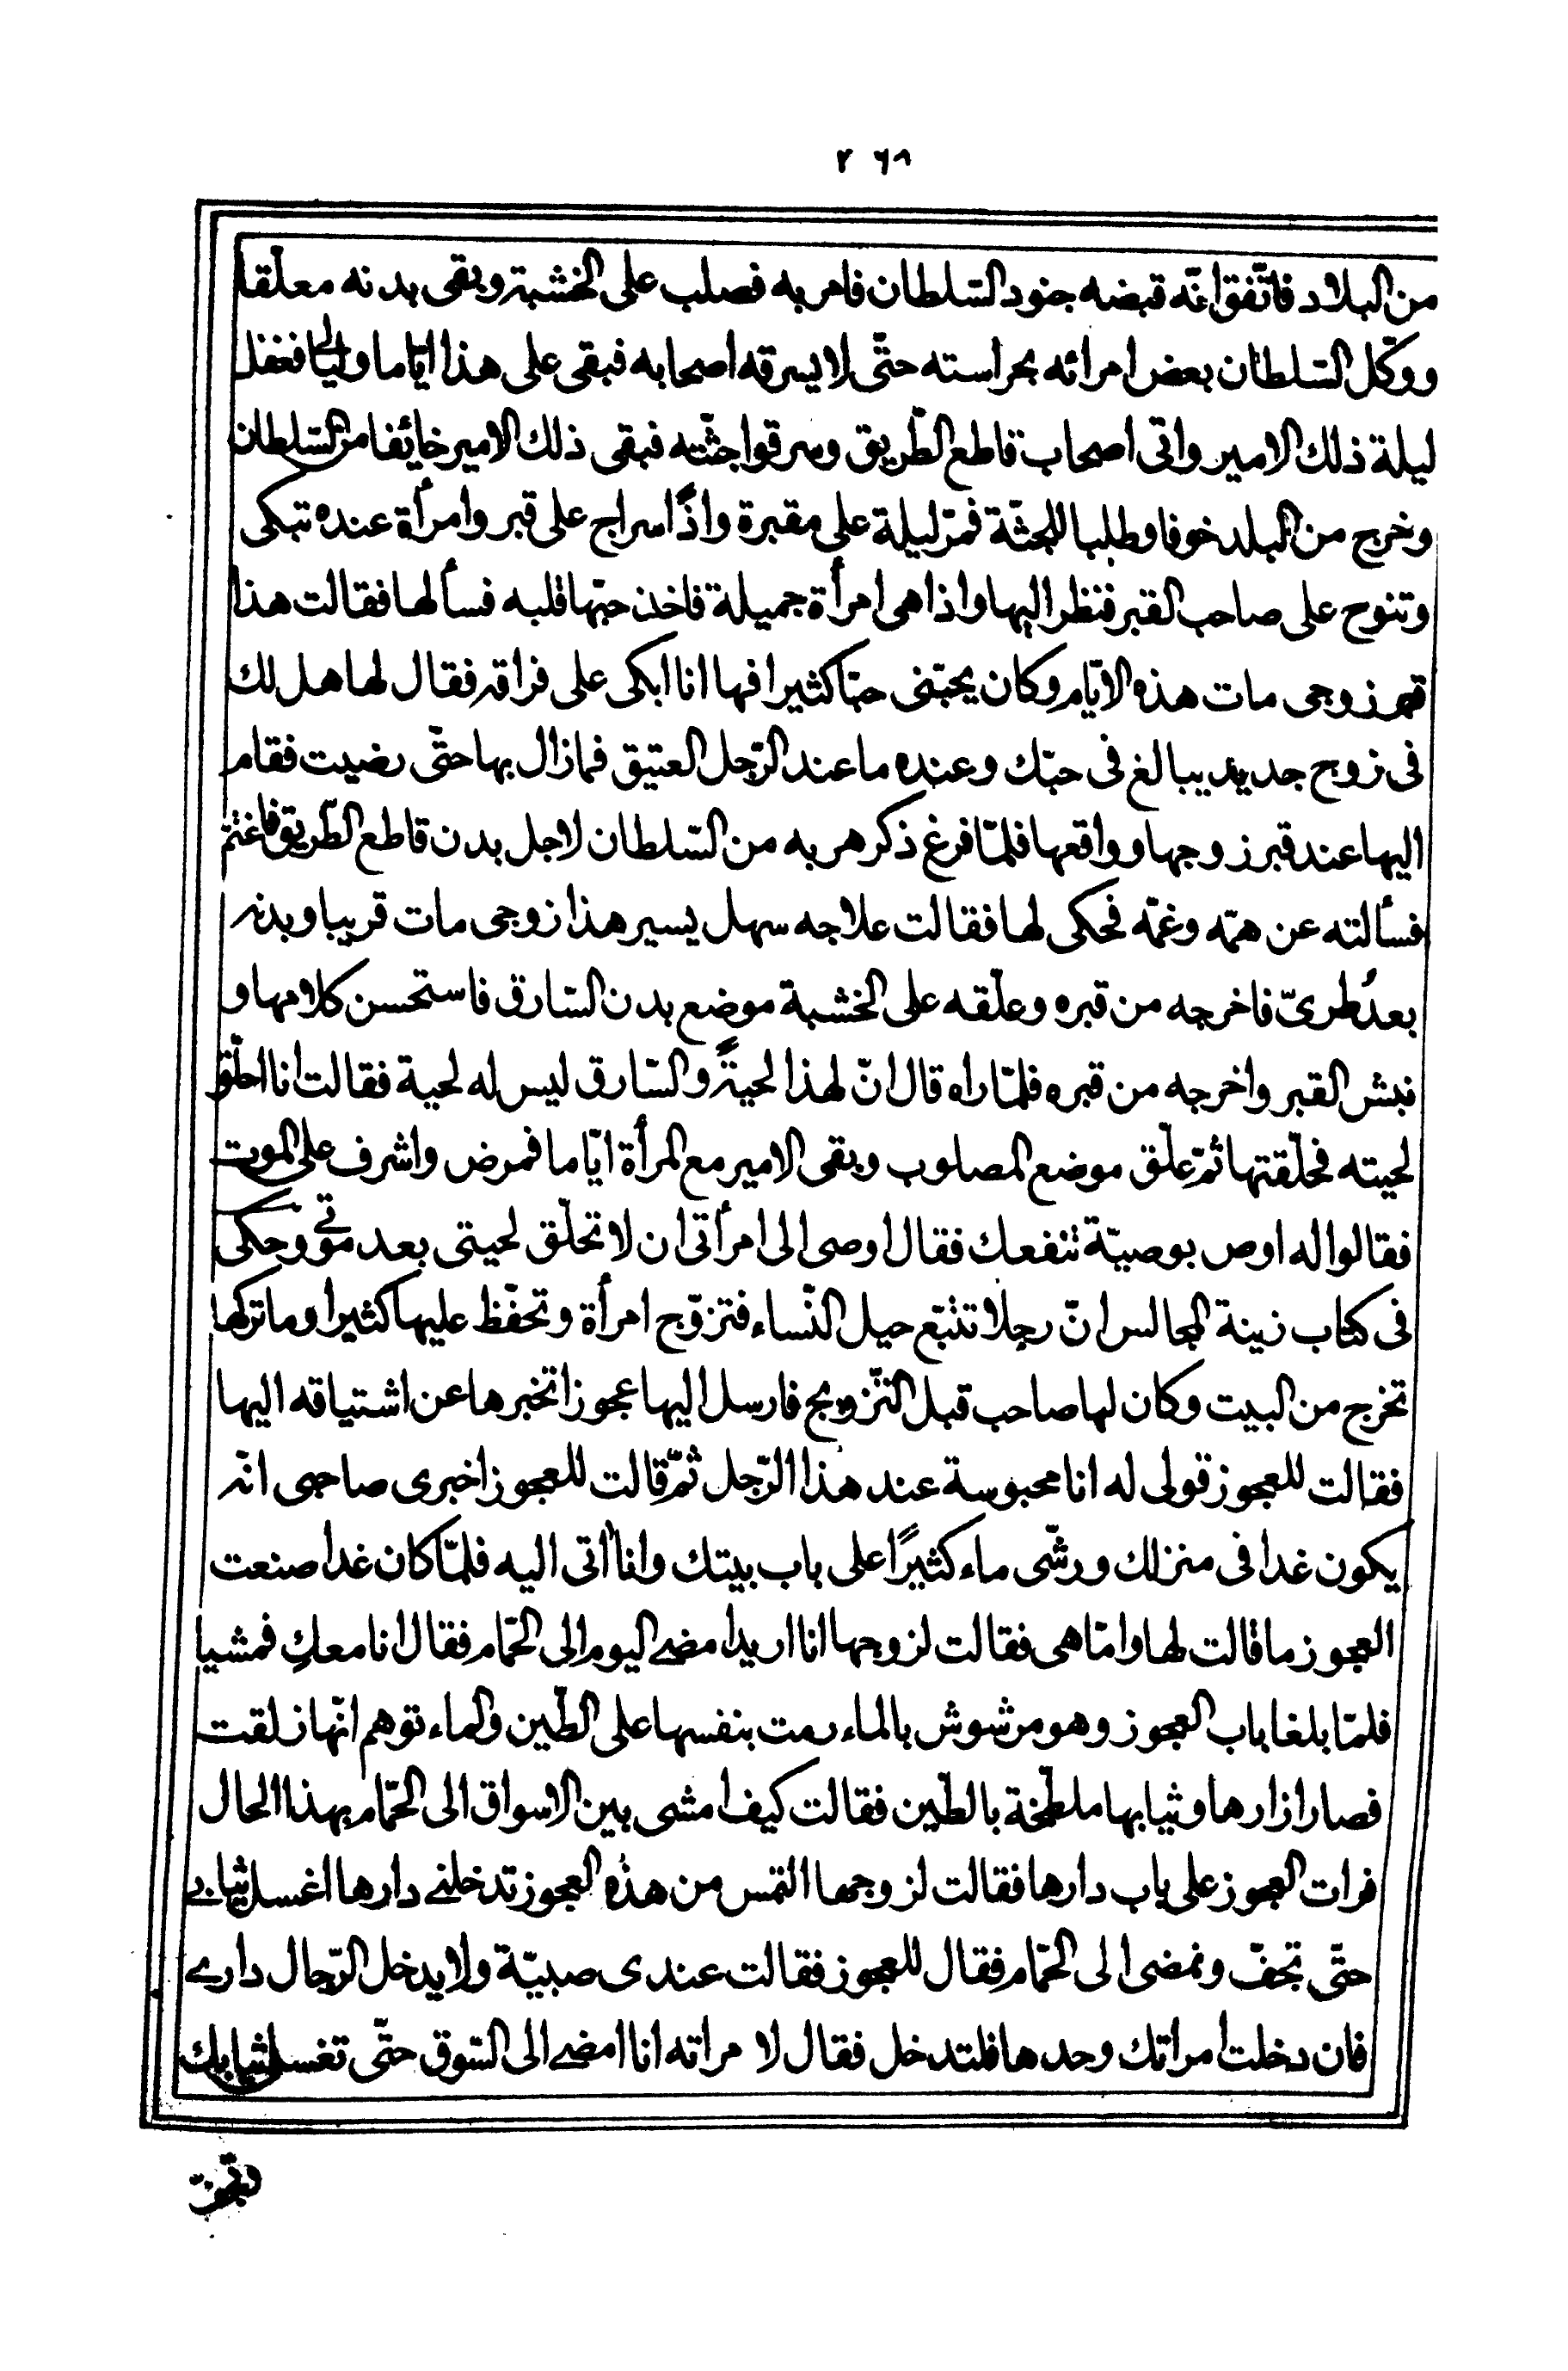 ٢٦٨
من البلاد فاتّفق انّه قبضه جنود السّلطان فامر به فصلب على الخشبة وبقى بدنه معلّقا
ووكّل السّلطان بعض امرائه بحراسته حتّى لا يسرقه اصحابه فبقى على هذا ايّاما وليالى فغفل
ليلة ذلك الامير واتى اصحاب قاطع الطّريق وسرقوا جثّته فبقى ذلك الامير خائفا من السّلطان
وخرج من البلد خوفا وطلبا للجثّة فمرّ ليلة على مقبرة واذًا سراج على قبر وامرأة عنده تبكى
وتنوح على صاحب القبر فنظر اليها واذا هى امرأة جميلة فاخذ حبّها قلبه فسألها فقالت هذا
قبر زوجى مات هذه الايّام وكان يحبّنى حبّا كثيرا فها انا ابكى على فراقه فقال لها هل لك
فى زوج جديد يبالغ فى حبّك وعنده ما عند الرّجل العتيق فما زال بها حتّى رضيت فقام
اليها عند قبر زوجها وواقعها فلمّا فرغ ذكر هربه من السّلطان لاجل بدن قاطع الطّريق فاغتمّ
فسألته عن همّه وغمّه فحكى لها فقالت علاجه سهل يسير هذا زوجى مات قريبا وبدنه
بعدُ طرىّ فاخرجه من قبره وعلّقه على الخشبة موضع بدن السّارق فاستحسن كلامها و
نبش القبر واخرجه من قبره فلمّا راه قال انّ لهذا لحيةً والسّارق ليس له لحية فقالت انا احلّق
لحيته فحلّقتها ثمّ علّق موضع المصلوب وبقى الامير مع المرأة ايّاما فمرض واشرف على الموت
فقالوا له اوص بوصيّة تنفعك فقال اوصى الى امرأتى ان لا تحلّق لحيتى بعد موتى وحكى
فى كتاب زينة المجالس انّ رجلا تتبّع حيل النّساء فتزوّج امرأة وتحفّظ عليها كثيرا وما تركها
تخرج من البيت وكان لها صاحب قبل التّزويج فارسل اليها عجوزا تخبرها عن اشتياقه اليها
فقالت للعجوز قولى له انا محبوسة عند هذا الرّجل ثمّ قالت للعجوز اخبرى صاحبى انّه
يكون غدا فى منزلك ورشّى ماء كثيرًا على باب بيتك وانا اتى اليه فلمّا كان غدا صنعت
العجوز ما قالت لها وامّا هى فقالت لزوجها انا اريد امضى اليوم الى الحمّام فقال انا معكِ فمشيا
فلمّا بلغا باب العجوز وهو مرشوش بالماء رمت بنفسها على الطّين والماء توهم انّها زلقت
فصار ازارها وثيابها ملطّخة بالطّين فقالت كيف امشى بين الاسواق الى الحمّام بهذا الحال
فرات العجوز على باب دارها فقالت لزوجها التمس من هذه العجوز تدخلنى دارها اغسل ثيابى
حتّى تجفّ ونمضى الى الحمّام فقال للعجوز فقالت عندى صبيّة ولا يدخل الرّجال دارى
فان دخلت امراتك وحدها فلتدخل فقال لا مراته انا امضى الى السّوق حتّى تغسل ثيابك
وتجفّ